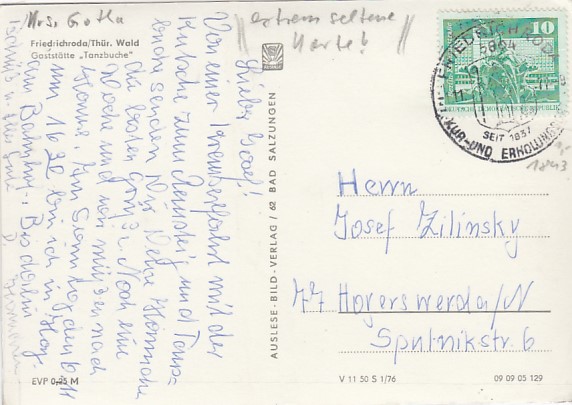 Krs. Gotha
extrem seltene
Karte!
Friedrichroda/Thür. Wald
Gaststätte „Tanzbuche"
Lieber Josef!
Von einer fahrt mit der
Kutsche zum Rennsteig und Tanz-
buche senden Dir Deine
die besten Grüße. Noch eine
Woche und wir müssen nach
Hause. Am 6.11
um 16 bin ich in Hoy.
am Bahnhof. Bis dahin
AUSLESE-BILD-VERLAG / 62 BAD SALZUNGEN
10
DEUTSCHE DEMOKRATISCHE REPUBLIK
FRIEDRICHRODA
5804
SEIT 1837
KUR- UND ERHOLUNGS
1843
Herrn
Josef Zilinsky
77 Hoyerswerda/N
Sputnikstr. 6
EVP 0,25 M
V 11 50 S 1/76
09 09 05 129